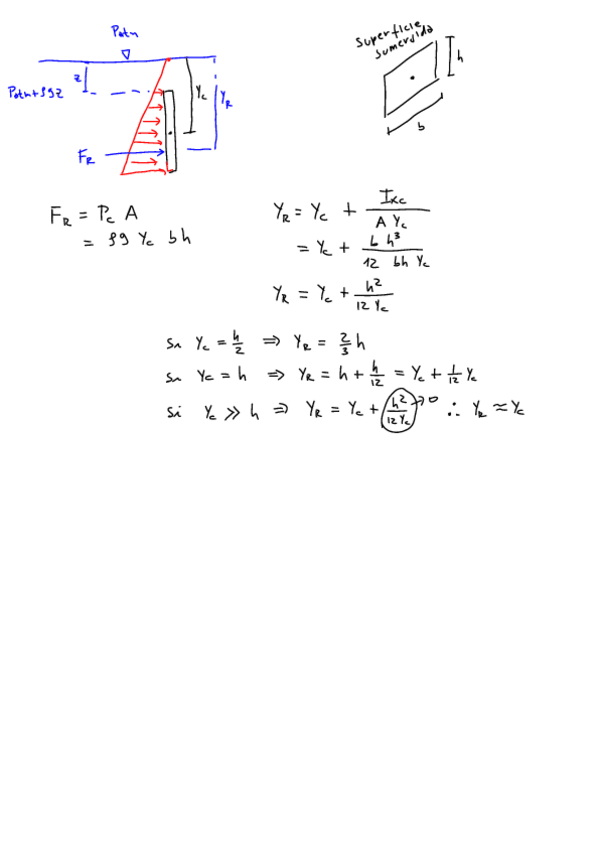 Patm
z
Patm+ρgz
Yc
YR
FR
Superficie
sumerdida
h
b
FR = Pc A
= ρg Yc bh
YR = Yc + Ixc / A Yc
= Yc + b h³ / 12 bh Yc
YR = Yc + h² / 12 Yc
si Yc = h/2 ⇒ YR = 2/3 h
si Yc = h ⇒ YR = h + h/12 = Yc + 1/12 Yc
si Yc ≫ h ⇒ YR = Yc + h²/12 Yc → 0 ∴ YR ≈ Yc